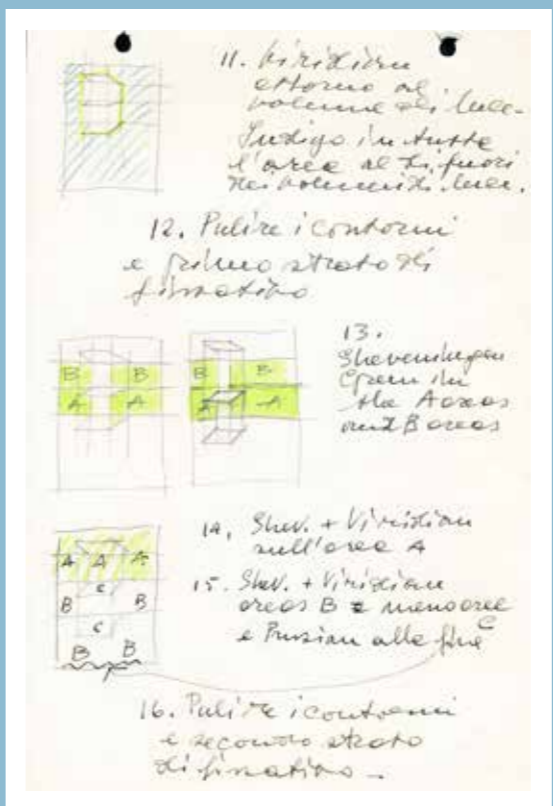 11. Viridian
attorno al
volume di luce.
Indigo in tutta
l'area al di fuori
dei volumi di luce.
12. Pulire i contorni
e primo strato di
fissativo
B B
A A
B B
A A
13.
Sheveningen
Green in
the A areas
and B areas
A A A
C
B B
C
B B
14. Shev. + Viridian
sull'area A
15. Shev. + Viridian
areas B e meno aree C
e Prussian alla fine
16. Pulire i contorni
e secondo strato
di fissativo -